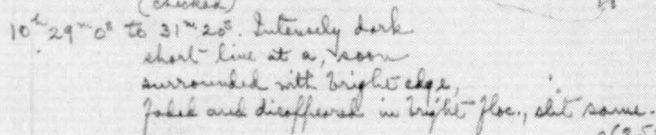 (checked)
10ʰ 29ᵐ 0ˢ to 31ᵐ 20ˢ. Intensely dark
short line at a, soon
surrounded with bright edge,
faded and disappeared in bright floc., slit same.